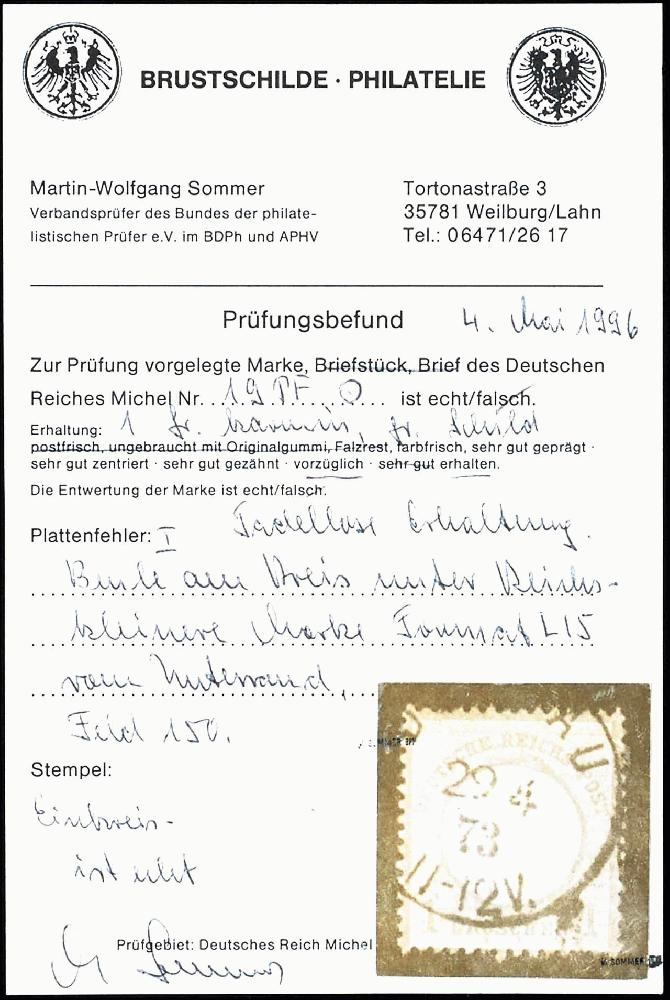 BRUSTSCHILDE · PHILATELIE
Martin-Wolfgang Sommer
Verbandsprüfer des Bundes der philate-
listischen Prüfer e.V. im BDPh und APHV
Tortonastraße 3
35781 Weilburg/Lahn
Tel.: 06471/26 17
Prüfungsbefund 4. Mai 1996
Zur Prüfung vorgelegte Marke, Briefstück, Brief des Deutschen
Reiches Michel Nr. 19 PF O ist echt/falsch.
Erhaltung: 1 Gr. karmin, gr. Schild
postfrisch, ungebraucht mit Originalgummi, Falzrest, farbfrisch, sehr gut geprägt ·
sehr gut zentriert · sehr gut gezähnt · vorzüglich · sehr gut erhalten.
Die Entwertung der Marke ist echt/falsch.
Plattenfehler: I Tadellose Erhaltung.
Beule am Kreis unter Reichs-
kleinere Marke Format L 15
vom Unterrand,
Feld 150.
Stempel:
Einkreis-
ist echt
Prüfgebiet: Deutsches Reich Michel
M Sommer
REICHS POST
29 4
73
11-12V.
1 1
M. SOMMER